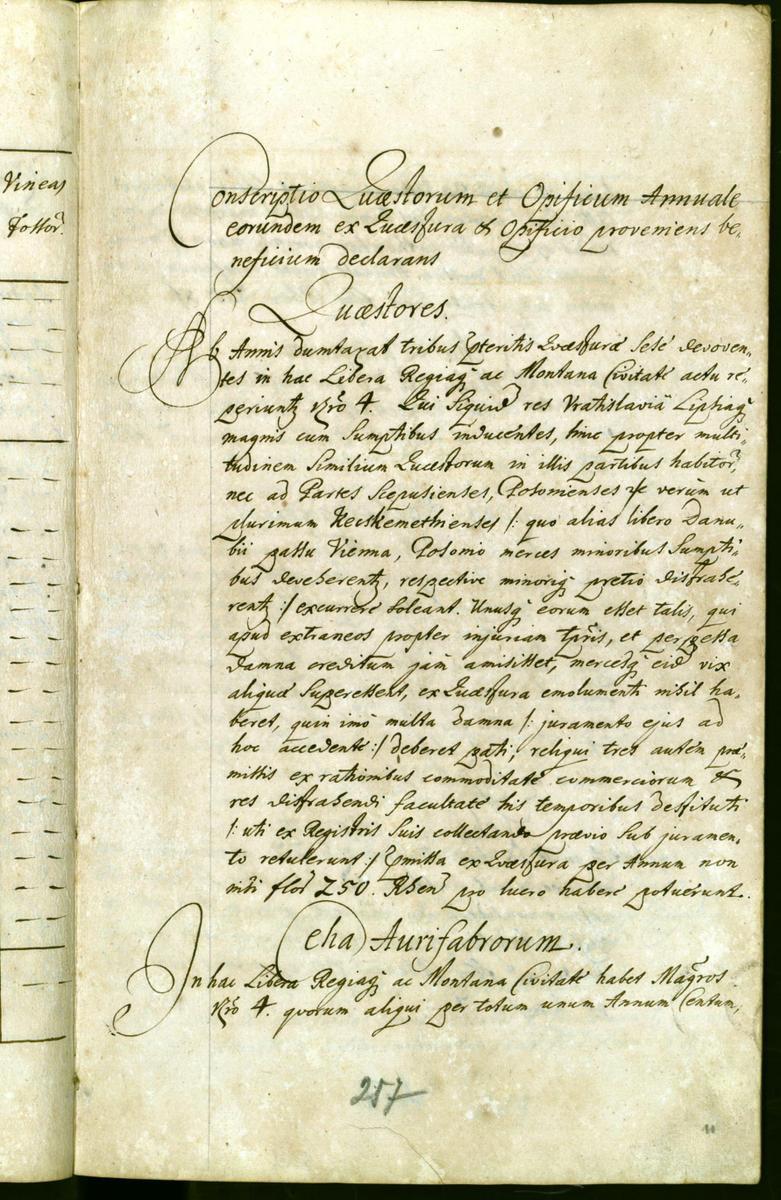 Vineas
Fossor.
Conscriptio Quæstorum et Opificum Annuale
eorundem ex Quæstura & Opificio proveniens be,
neficium declarans
Quæstores.
Ab Annis dumtaxat tribus pteritis Quæsturæ sese devoven,
tes in hac Libera Regiaq ac Montana Civitate actu re,
periuntr Nro 4. Qui siquid res Vratislaviâ Lipsiaq
magnis cum sumptibus inducentes, hinc propter multi,
tudinem similium Quæstorum in illis partibus habitor,
nec ad Partes Scepusienses, Posonienses &c verùm ut
plurimum Kecskemethienses /: quo alias libero Danu,
bii passu Vienna, Posonio merces minoribus sumpti,
bus deveherentr, respective minoriq pretio distrahe,
rentr :/ excurrere soleant. Unusq eorum esset talis, qui
apud extraneos propter injuriam tpris, et perpessa
damna creditum jam amisisset, mercesq eid vix
aliquæ superessent, ex Quæstura emolumenti nihil ha,
beret, quin imò multa damna /: juramento ejus ad
hoc accedente :/ deberet pati; reliqui tres autem præ,
missis ex rationibus commoditate commerciorum &
res distrahendi facultate his temporibus destituti
/: uti ex Registris suis collectando prævio sub juramen,
to retulerunt :/ pmissa ex Quæstura per Annum non
nisi flor 250. Rhen pro lucro habere potuerunt.
Ceha Aurifabrorum.
In hac Libera Regiaq ac Montana Civitate habet Magros
Nro 4. quorum aliqui per totum unum Annum Centum,
257
11